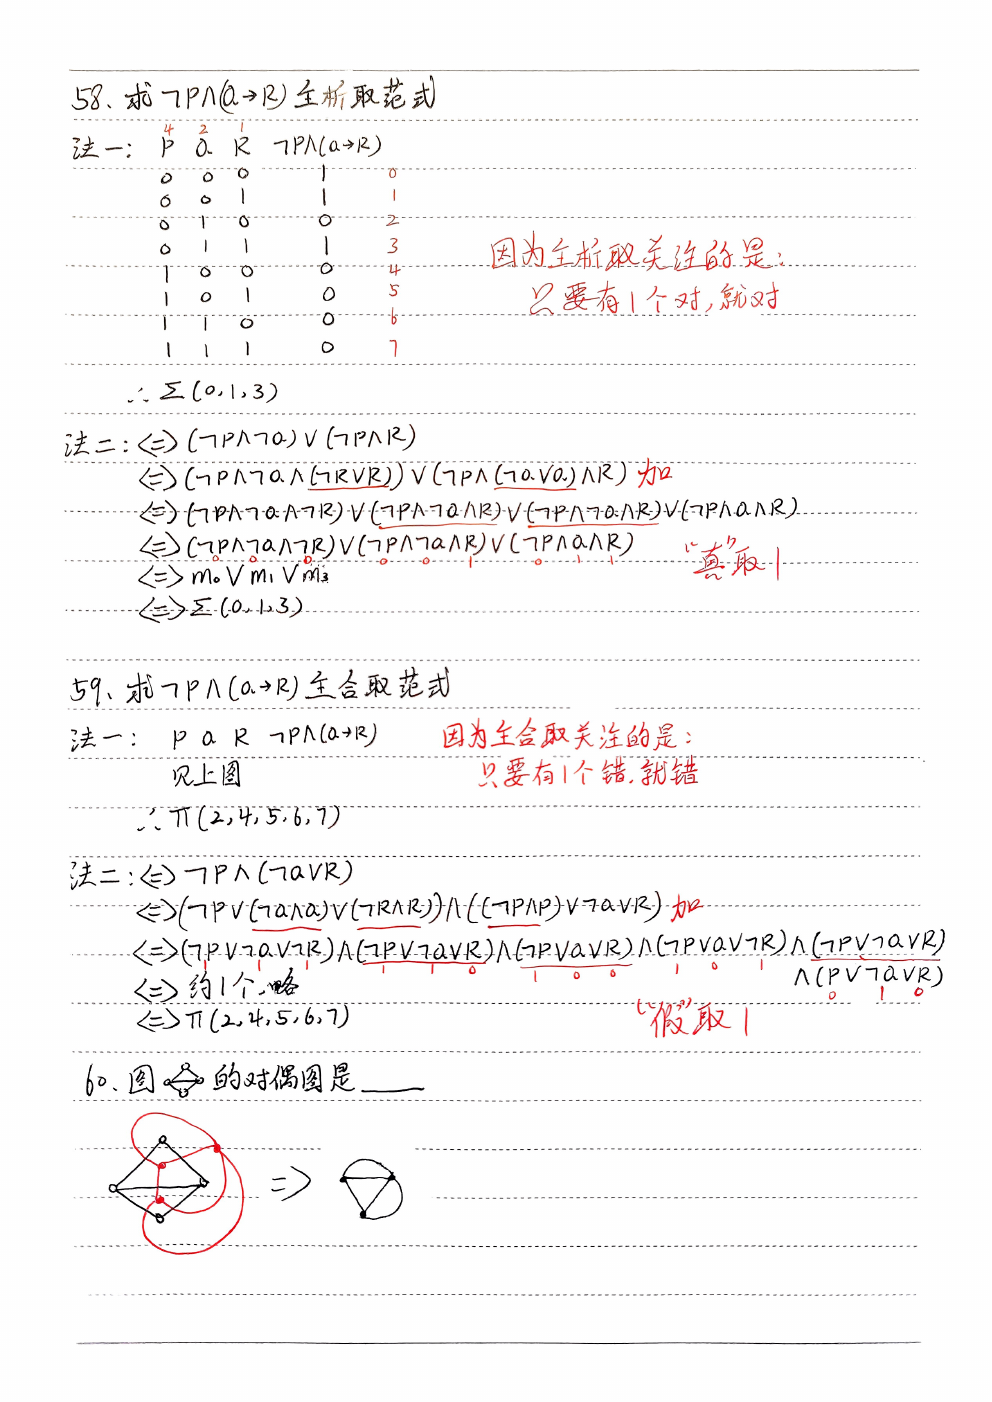 58、求¬P∧(Q→R)主析取范式
4 2 1
法一: P Q R ¬P∧(Q→R)
0 0 0 1 0
0 0 1 1 1
0 1 0 0 2
0 1 1 1 3
1 0 0 0 4
1 0 1 0 5
1 1 0 0 6
1 1 1 0 7
因为主析取关注的是:
只要有1个对,就对
∴Σ(0,1,3)
法二:<=>(¬P∧¬Q)∨(¬P∧R)
<=>(¬P∧¬Q∧(¬R∨R))∨(¬P∧(¬Q∨Q)∧R) 加
<=>(¬P∧¬Q∧¬R)∨(¬P∧¬Q∧R)∨(¬P∧¬Q∧R)∨(¬P∧Q∧R)
<=>(¬P∧¬Q∧¬R)∨(¬P∧¬Q∧R)∨(¬P∧Q∧R)
0 0 0 0 0 1 0 1 1
"真"取1
<=>m₀∨m₁∨m₃
<=>Σ(0,1,3)
59、求¬P∧(Q→R)主合取范式
法一: P Q R ¬P∧(Q→R)
见上图
因为主合取关注的是:
只要有1个错,就错
∴π(2,4,5,6,7)
法二:<=>¬P∧(¬Q∨R)
<=>(¬P∨(¬Q∧Q)∨(¬R∧R))∧((¬P∧P)∨¬Q∨R) 加
<=>(¬P∨¬Q∨¬R)∧(¬P∨¬Q∨R)∧(¬P∨Q∨R)∧(¬P∨Q∨¬R)∧(¬P∨¬Q∨R)
1 1 1 1 1 0 1 0 0 1 0 1
∧(P∨¬Q∨R)
0 1 0
<=>约1个,略
<=>π(2,4,5,6,7)
"假"取1
60、图 的对偶图是____
=>